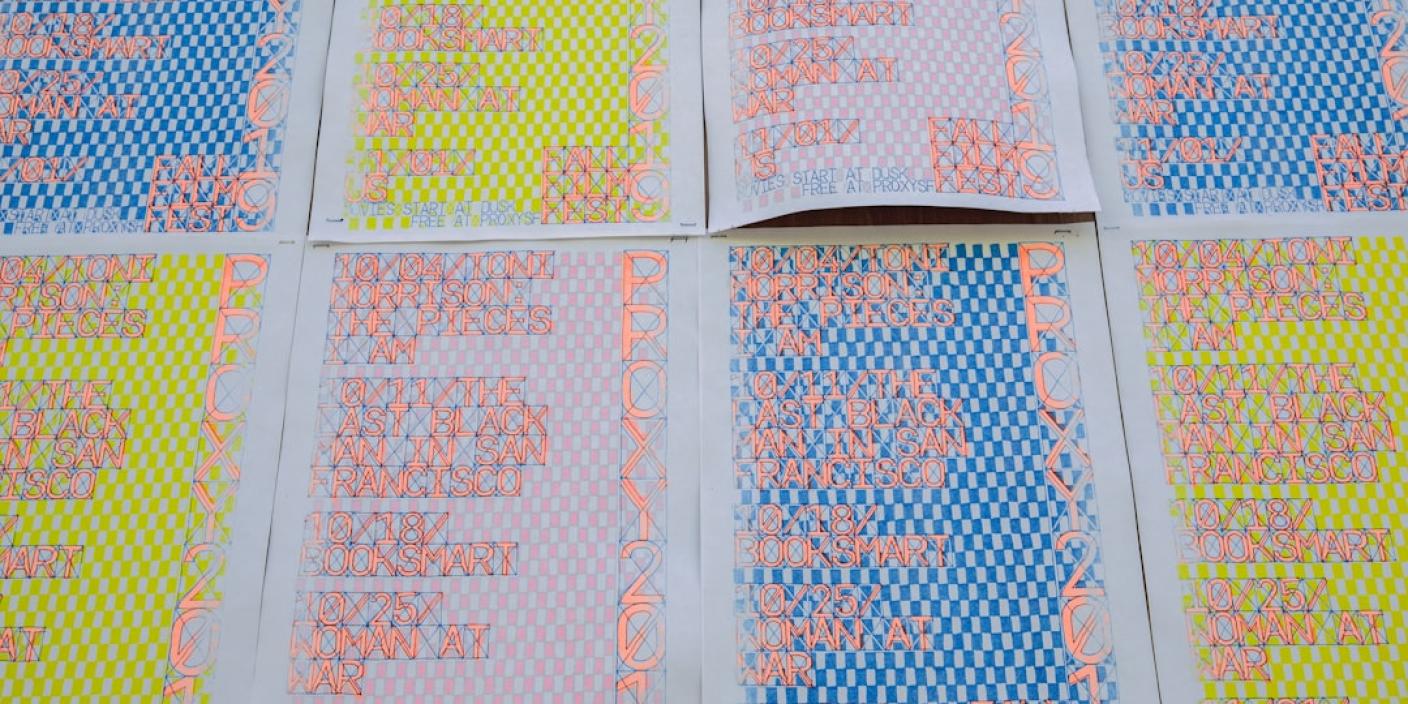 /18/
BOOKSMART
10/25/
WOMAN AT
AR
/01/
FALL
FILM
FEST
START AT DUSK
FREE AT PROXYSF
Y2019
10/18/
BOOKSMART
10/25/
WOMAN AT
WAR
11/01/
US
FALL
FILM
FEST
MOVIES START AT DUSK
FREE AT PROXYSF
Y2019
BOOKSMART
10/25/
WOMAN AT
WAR
11/01/
US
FALL
FILM
FEST
MOVIES START AT DUSK
FREE AT PROXYSF
2019
10/18/
BOOKSMART
10/25/
WOMAN AT
WAR
11/01/
US
FALL
FILM
FEST
MOVIES START AT DUSK
FREE AT PROXYSF
201
04/TONI
RISON:
PIECES
1/THE
BLACK
IN SAN
ISCO
MART
AT
PROXY20
10/04/TONI
MORRISON:
THE PIECES
I AM
10/11/THE
LAST BLACK
MAN IN SAN
FRANCISCO
10/18/
BOOKSMART
10/25/
WOMAN AT
WAR
PROXY201
10/04/TONI
MORRISON:
THE PIECES
I AM
10/11/THE
LAST BLACK
MAN IN SAN
FRANCISCO
10/18/
BOOKSMART
10/25/
WOMAN AT
WAR
PROXY201
10/04/TONI
MORRISON:
THE PIECES
I AM
10/11/THE
LAST BLACK
MAN IN SAN
FRANCISCO
10/18/
BOOKSMART
10/25/
WOMAN AT
WAR